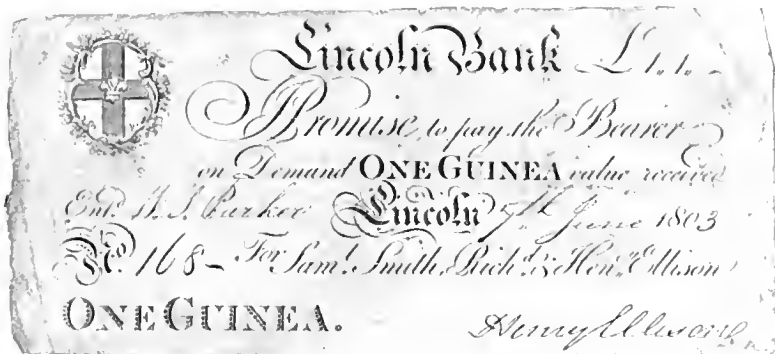 Lincoln Bank £1.1.-
I Promise, to pay the Bearer
on Demand ONE GUINEA value received
Ent.d W. J. Parker Lincoln 7th June 1803
No. 168- For Sam.l Smith, Rich.d & Hen.y Ellison
ONE GUINEA. Henry Ellison